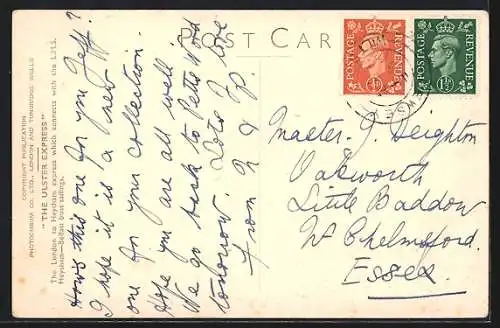 POST CARD
COPYRIGHT PUBLICATION
PHOTOCHROM CO. LTD., LONDON AND TUNBRIDGE WELLS
"THE ULSTER EXPRESS"
The London to Heysham express which connects with the L.M.S.
Heysham—Belfast boat sailings.
How's this one for you Jeff?
I hope it is a new
one for your collection.
Hope you are all well
We go back to Petts Wood
tomorrow. Lots of love
From N & P.
POSTAGE REVENUE
½D
POSTAGE REVENUE
1½D
Master J. Deighton
Oakworth
Little Baddow
Nr Chelmsford.
Essex